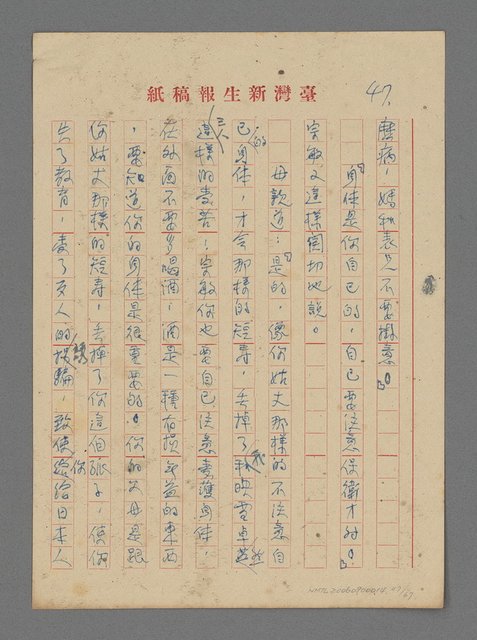 47.
臺灣新生報稿紙
塵病,媽和表兄不要掛意。」
「身体是你自己的,自己要注意保衛才对。」
宗敏又這樣関切地說。
母親道:「是的,像你姑丈那樣的不注意自
己的身体,才会那樣的短寿,丟掉了我和映雪卓然
三人這樣的妻苦!宗敏你也要自己注意愛護身体,
在外面不要多喝酒,酒是一種有損無益的東西
,要知道你的身体是很重要的。你的父母是跟
你姑丈那樣的短寿,丟掉了你這個孤子,使你
失了教育,妻了友人的誘騙,致使你給治日本人
NMTL20060900014 47/67